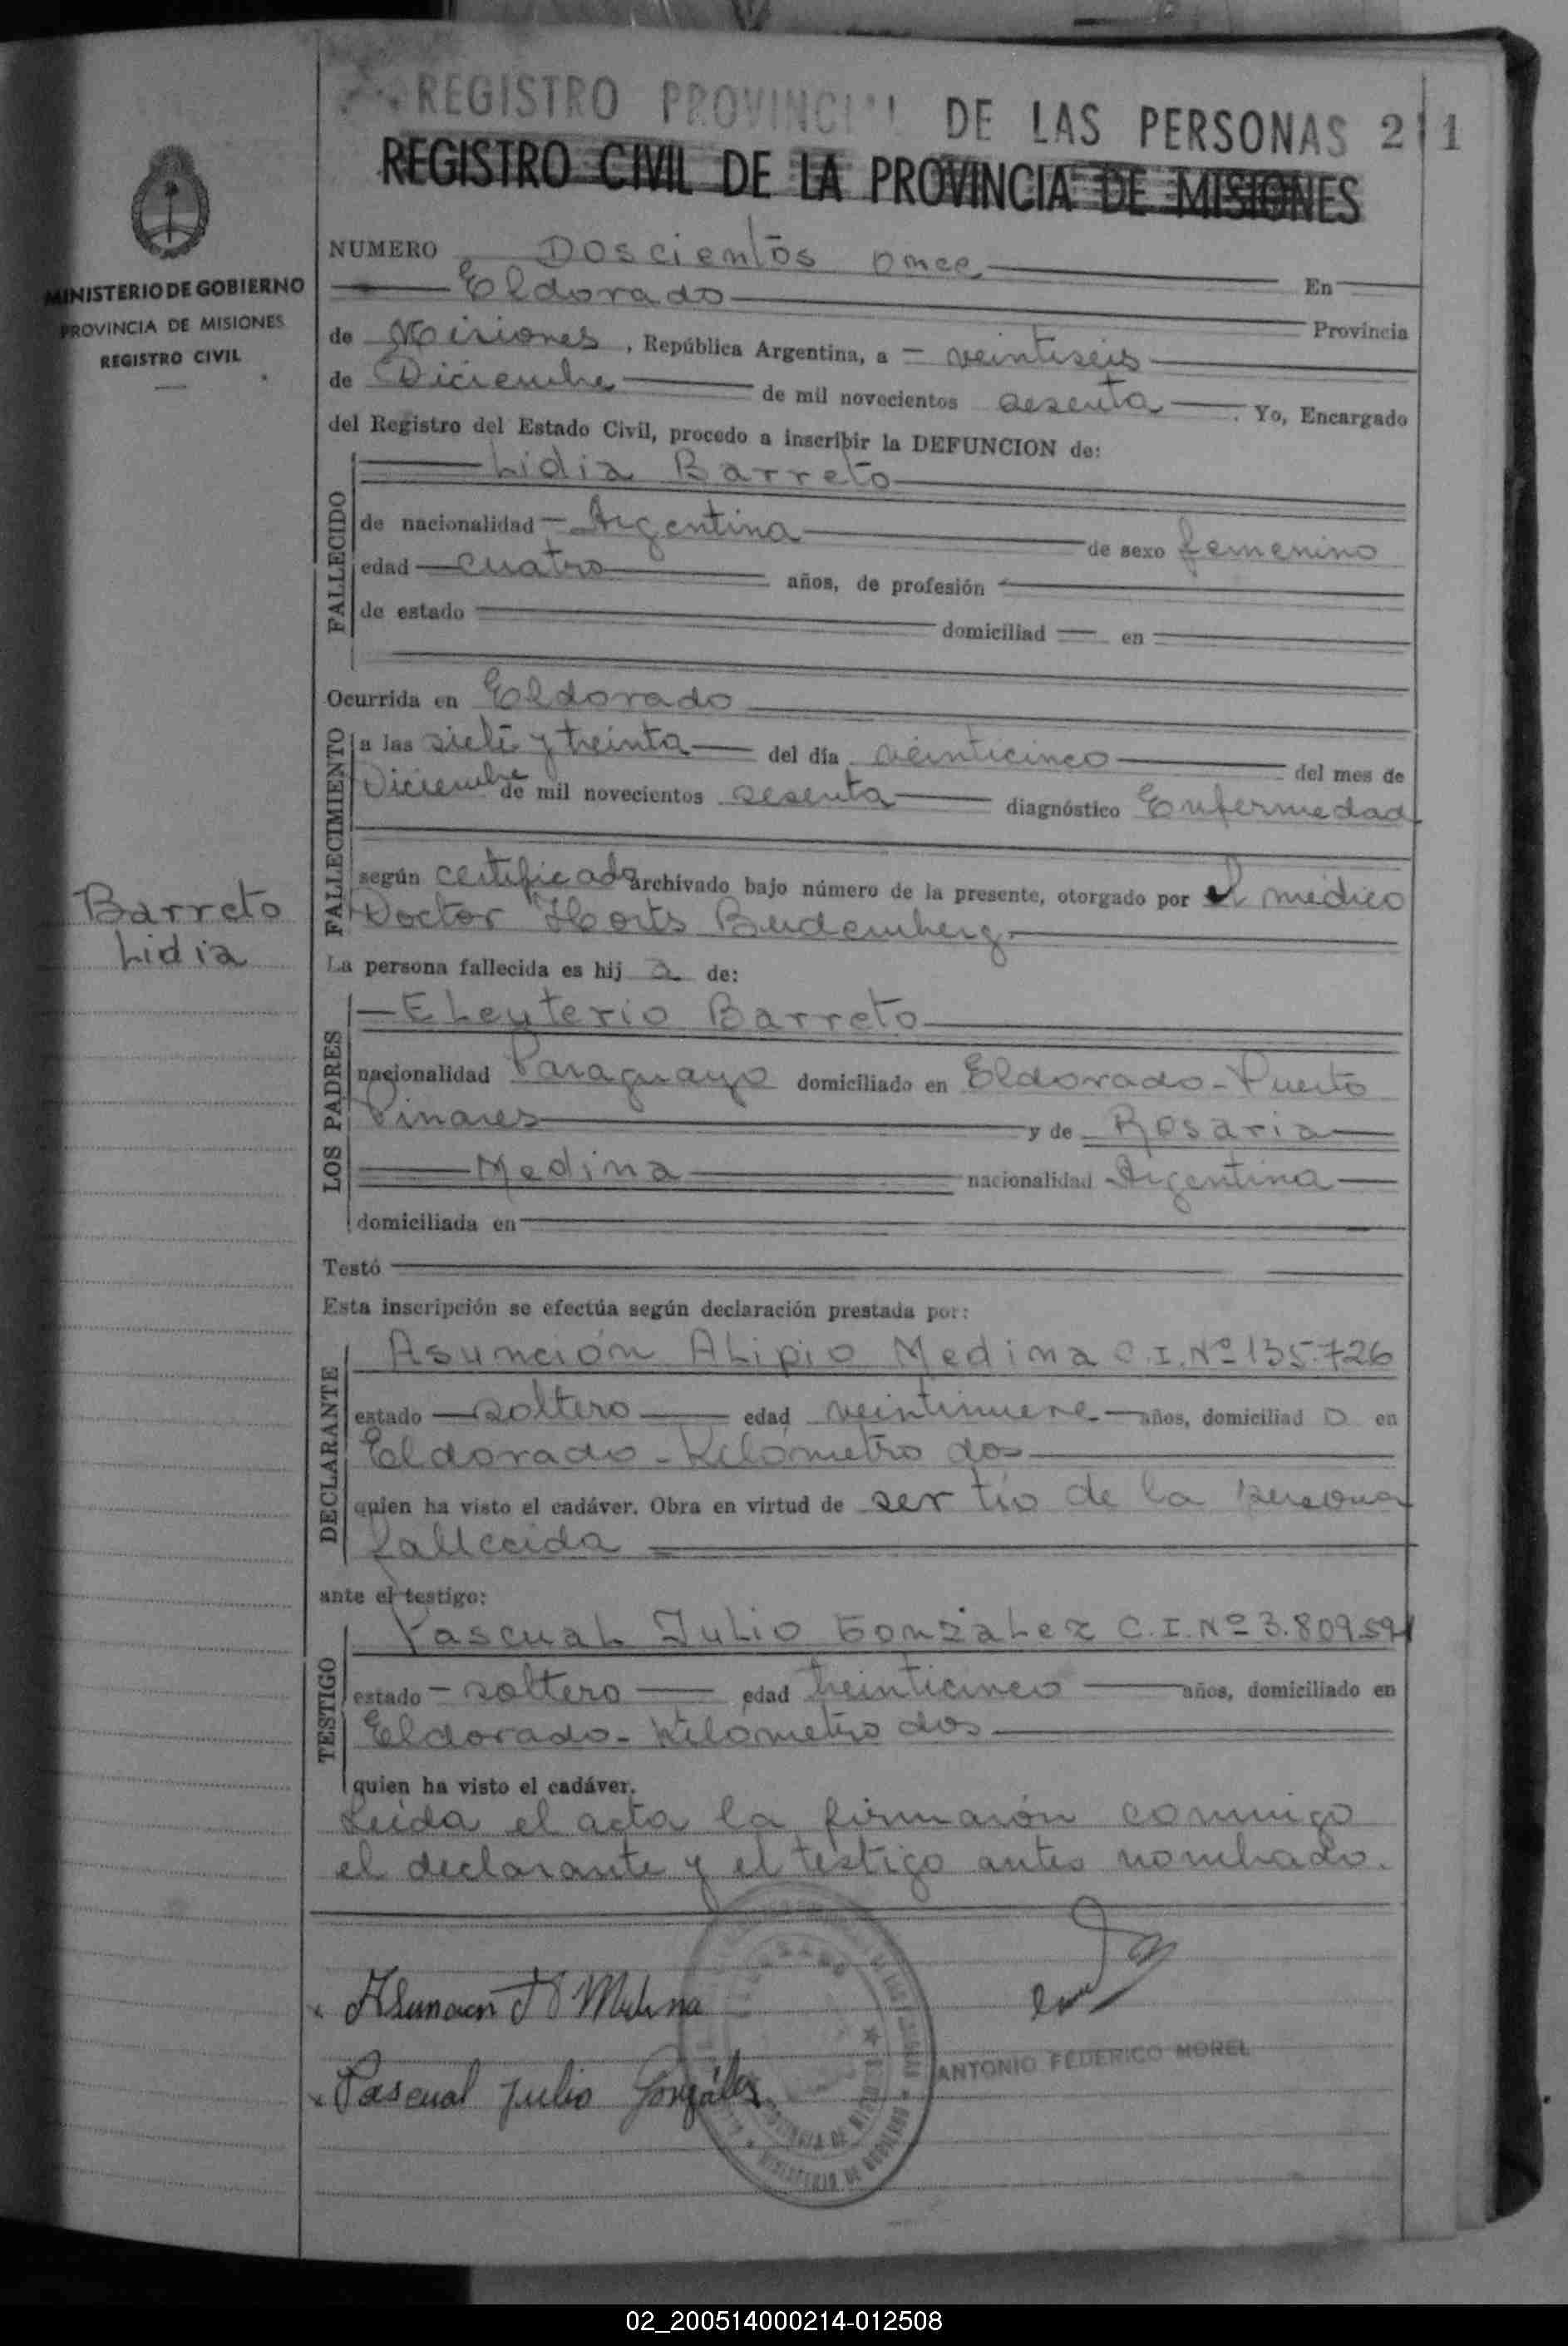 REGISTRO PROVINCIAL DE LAS PERSONAS 211
REGISTRO CIVIL DE LA PROVINCIA DE MISIONES
MINISTERIO DE GOBIERNO
PROVINCIA DE MISIONES
REGISTRO CIVIL
NUMERO Doscientos once En
Eldorado Provincia
de Misiones, República Argentina, a veintiseis
de Diciembre de mil novecientos sesenta. Yo, Encargado
del Registro del Estado Civil, procedo a inscribir la DEFUNCION de:
FALLECIDO
Lidia Barreto
de nacionalidad Argentina de sexo femenino
edad cuatro años, de profesión
de estado domiciliad en
Ocurrida en Eldorado
FALLECIMIENTO
a las siete y treinta del día veinticinco del mes de
Diciembre de mil novecientos sesenta diagnóstico Enfermedad
según certificado archivado bajo número de la presente, otorgado por el médico
Doctor Horts Budemberg
Barreto
Lidia
La persona fallecida es hij a de:
LOS PADRES
Eleuterio Barreto
nacionalidad Paraguayo domiciliado en Eldorado - Puerto
Pinares y de Rosaria
Medina nacionalidad Argentina
domiciliada en
Testó
Esta inscripción se efectúa según declaración prestada por:
DECLARANTE
Asunción Alipio Medina C.I. Nº 135.726
estado soltero edad veintinueve años, domiciliad o en
Eldorado - Kilómetro dos
quien ha visto el cadáver. Obra en virtud de ser tío de la persona
fallecida
ante el testigo:
TESTIGO
Pascual Julio Gonzalez C.I. Nº 3.809.591
estado soltero edad treinticinco años, domiciliado en
Eldorado - Kilómetro dos
quien ha visto el cadáver.
Leída el acta la firmarón conmigo
el declarante y el testigo antes nombrado.
Asuncion A Medina
Pascual Julio González
ANTONIO FEDERICO MOREL
PROVINCIA DE MISIONES
MINISTERIO DE GOBIERNO
02_200514000214-012508